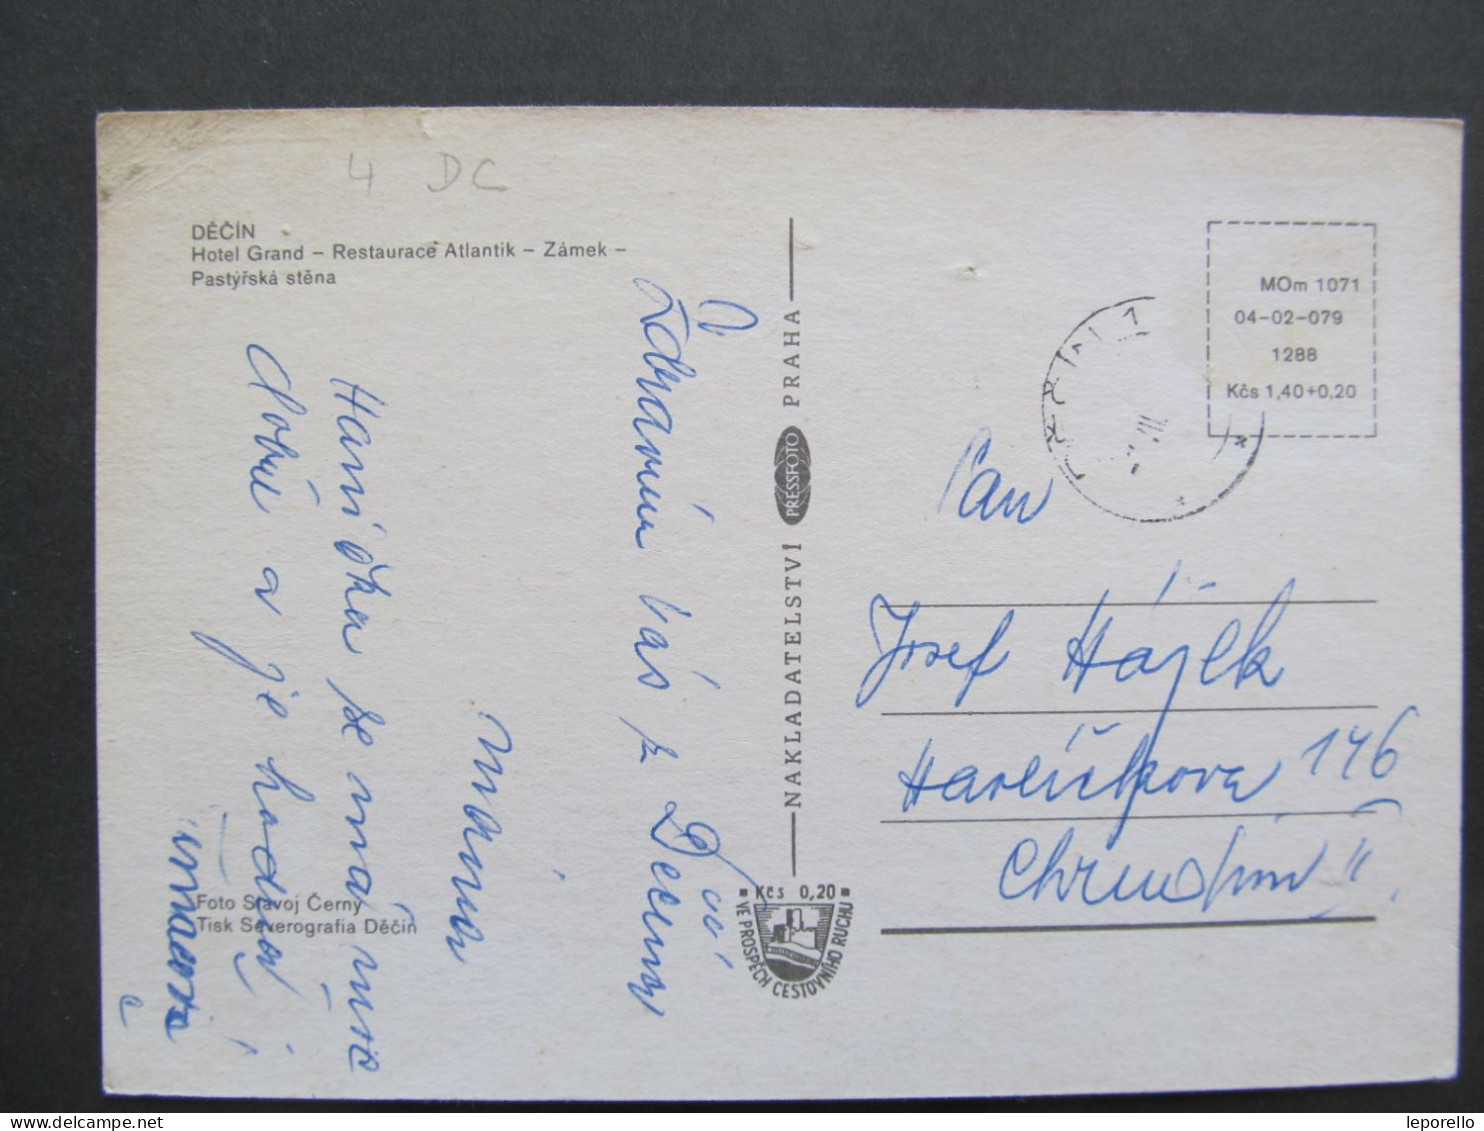 4 DC
DĚČÍN
Hotel Grand – Restaurace Atlantik – Zámek –
Pastýřská stěna
Zdravím Vás z Děčína
máma
Hanička se má
dobře a je hodná
Foto Slavoj Černý
Tisk Severografia Děčín
NAKLADATELSTVÍ PRESSFOTO PRAHA
Kčs 0,20
VE PROSPĚCH CESTOVNÍHO RUCHU
MOm 1071
04-02-079
1288
Kčs 1,40+0,20
Pan
Josef Hájek
Havlíčkova 146
Chrudim II
leporello